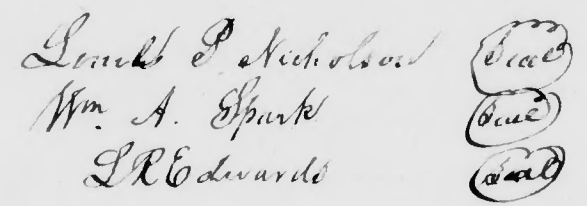 Lemuel P Nicholson Seal
Wm. A. Spark Seal
L R Edwards Seal